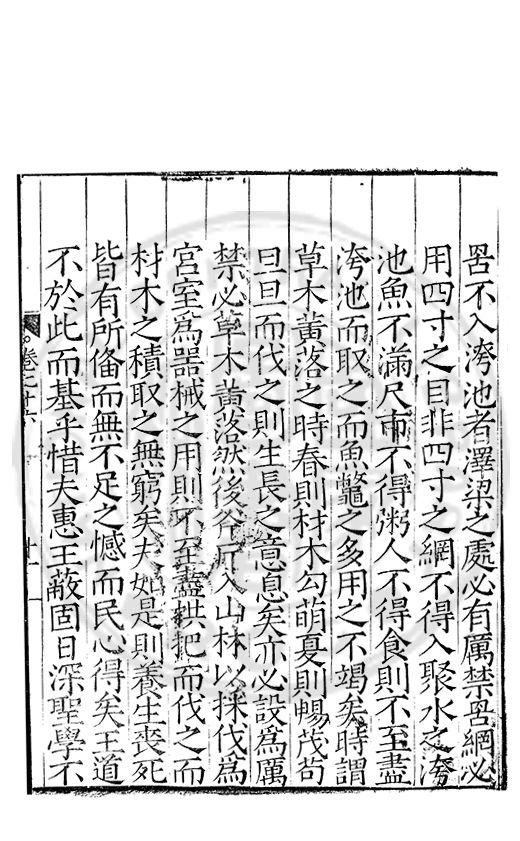 罟不入洿池者澤梁之處必有厲禁罟網必
用四寸之目非四寸之網不得入聚水之洿
池魚不滿尺市不得粥人不得食則不至盡
洿池而取之而魚鼈之多用之不竭矣時謂
草木黃落之時春則材木勾萌夏則暢茂苟
旦旦而伐之則生長之意息矣亦必設為厲
禁必草木黃落然後斧斤入山林以採伐為
宮室爲器械之用則不至盡拱把而伐之而
材木之積取之無窮矣夫如是則養生喪死
皆有所俻而無不足之憾而民心得矣王道
不於此而基乎惜夫惠王蔽固日深聖學不
卷之廿六
廿一